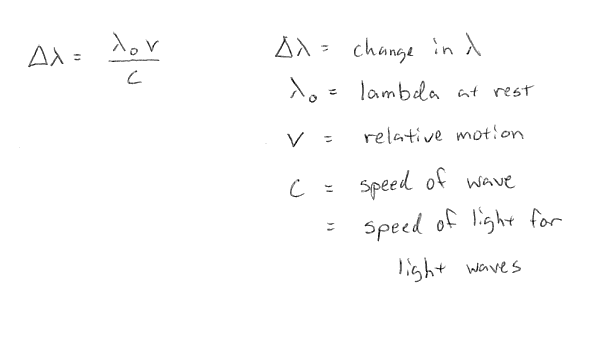 Δλ = λ₀ v / c
Δλ = change in λ
λ₀ = lambda at rest
v = relative motion
c = speed of wave
= speed of light for
light waves